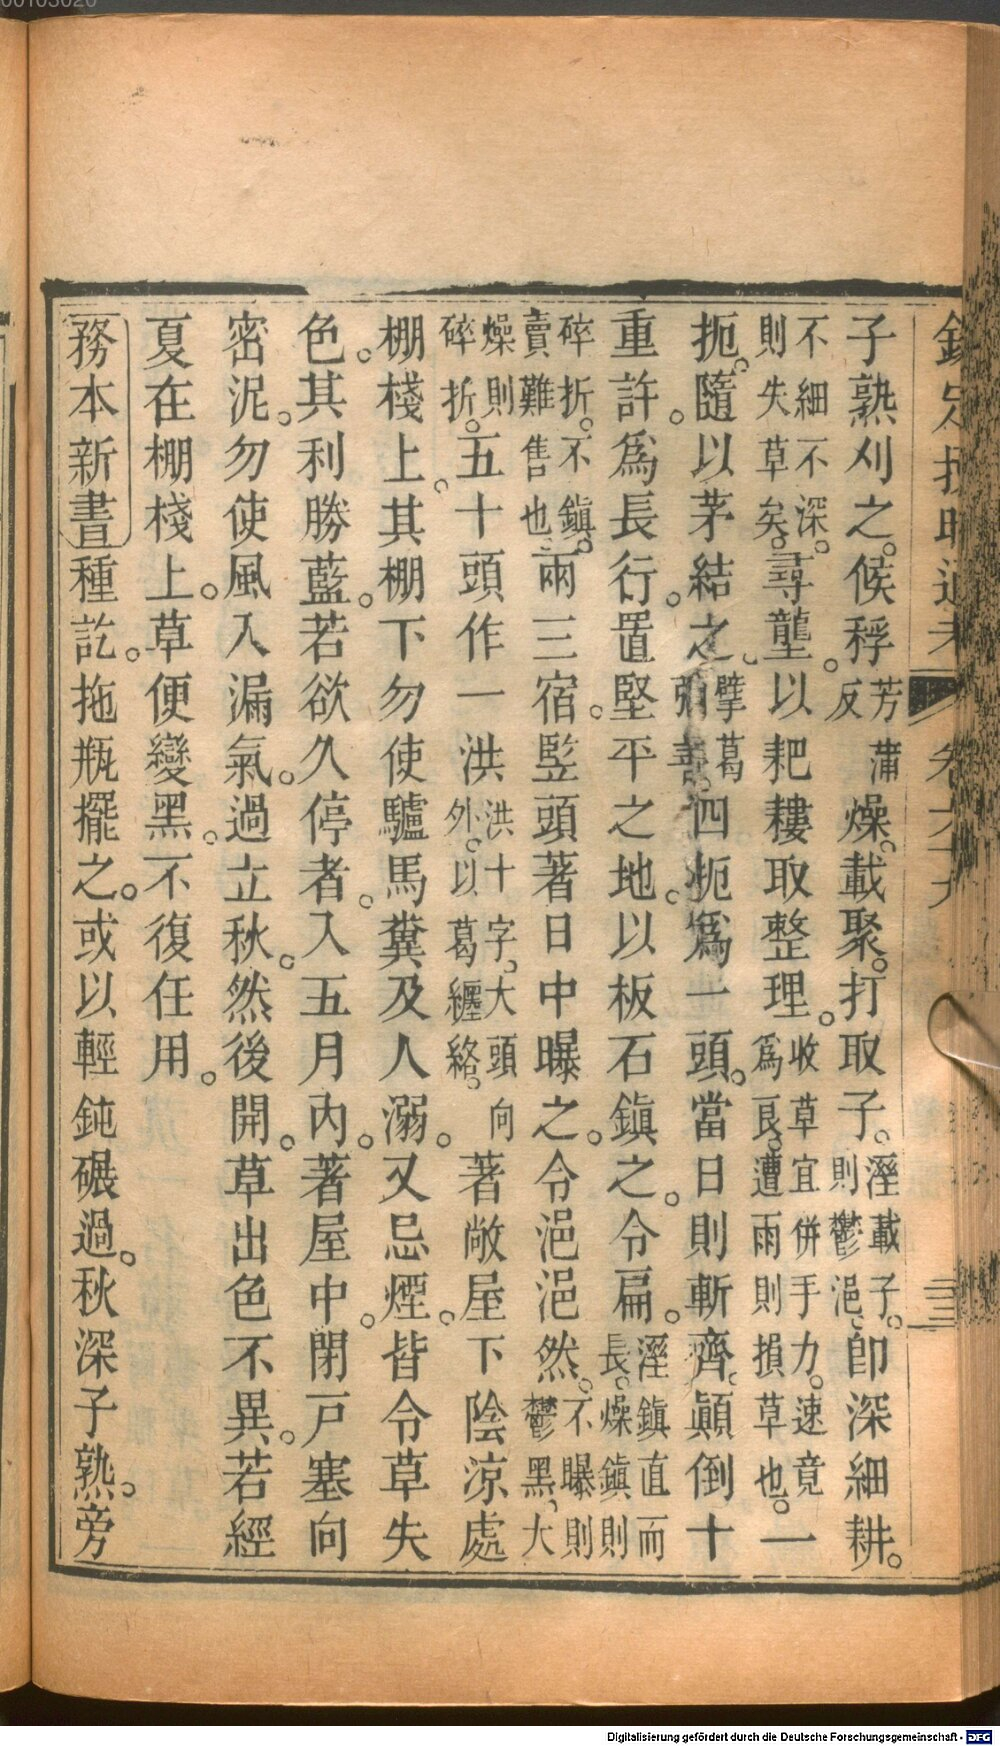 子熟刈之。候稃芳蒲反燥。載聚。打取子。溼載子。則鬱浥。卽深細耕。
不細不深。則失草矣。尋壟。以耙耬取整理。收草宜併手力。速竟爲良。遭雨則損草也。一
扼。隨以茅結之。擘葛彌善。四扼爲一頭。當日則斬齊。顚倒十
重許。爲長行。置堅平之地。以板石鎭之。令扁。溼鎭直而長。燥鎭則
碎折。不鎭。賣難售也。兩三宿。竪頭著日中曝之。令浥浥然。不曝則鬱黑。大
燥則碎折。五十頭作一洪洪十字。大頭向外。以葛纒絡。著敞屋下陰涼處
棚棧上。其棚下勿使驢馬糞及人溺。又忌煙。皆令草失
色。其利勝藍。若欲久停者。入五月內。著屋中。閉戸塞向
密泥。勿使風入漏氣。過立秋。然後開。草出色不異。若經
夏在棚棧上。草便變黑。不復任用。
務本新書種訖。拖瓶擺之。或以輕鈍碾過。秋深子熟。旁
00103020
Digitalisierung gefördert durch die Deutsche Forschungsgemeinschaft - DFG